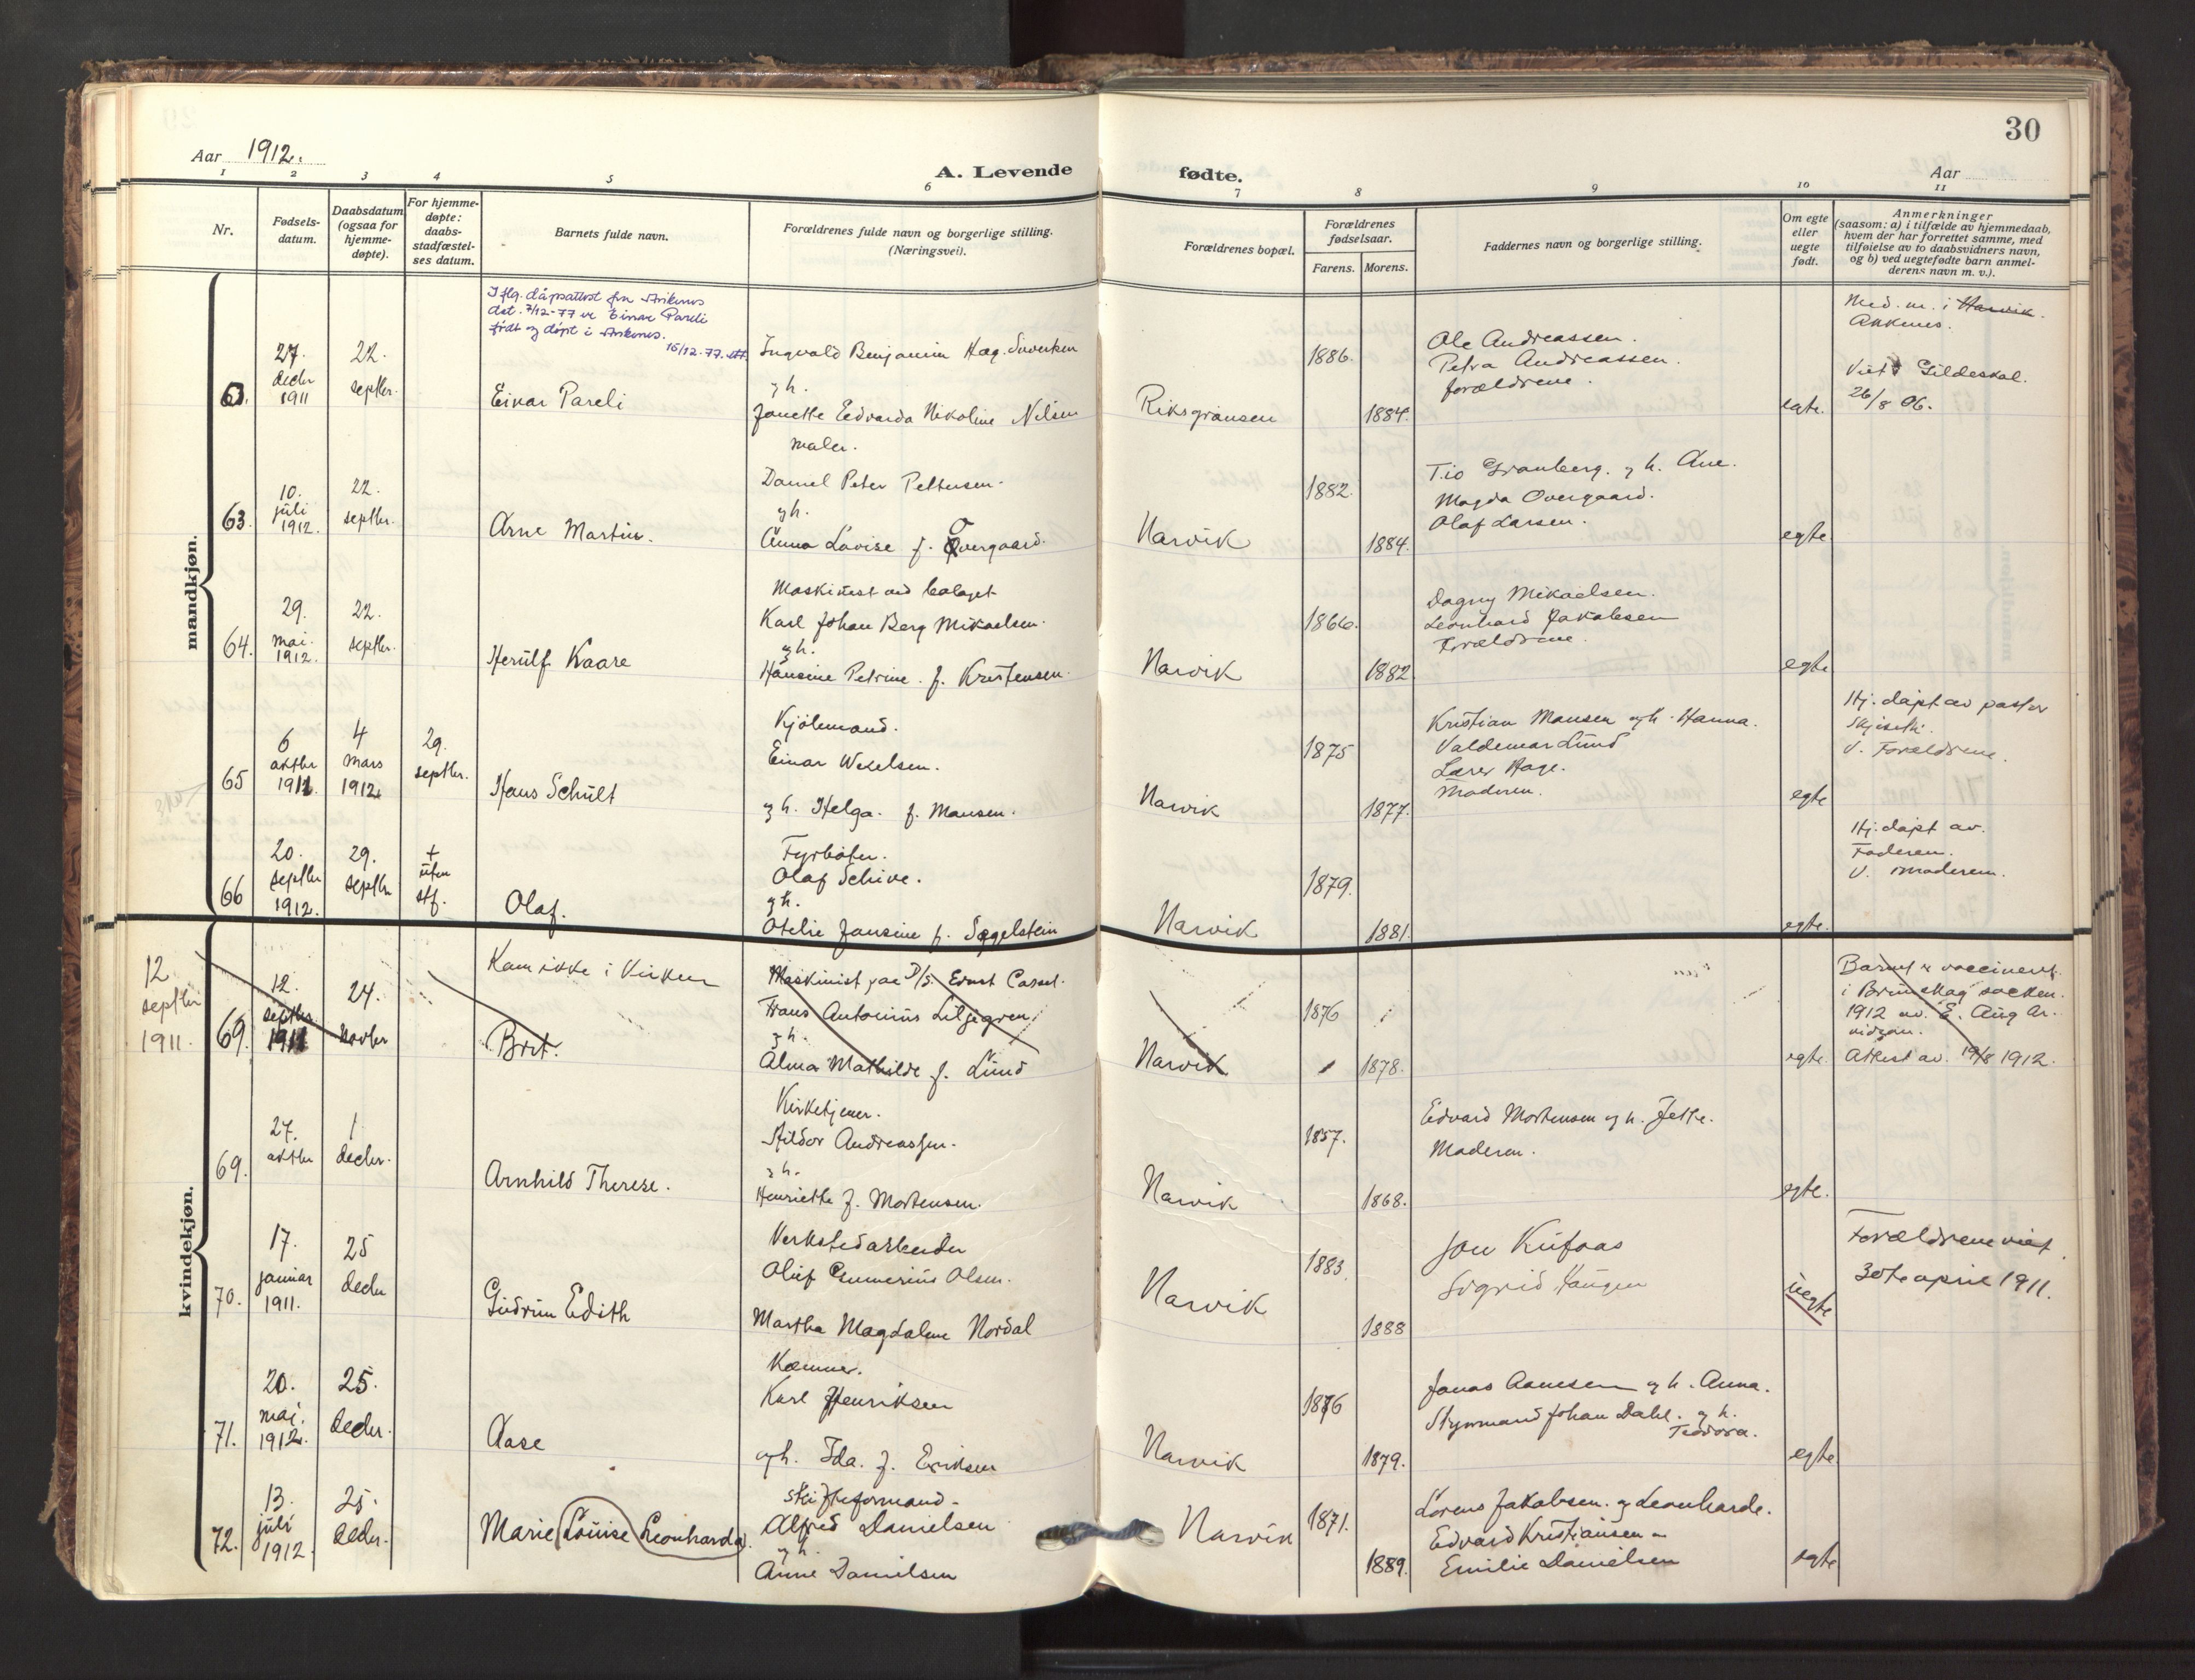 30
Aar 1912.
A. Levende fødte.
Aar
1 2 3 4 5 6 7 8 9 10 11
Nr.
Fødsels-
datum.
Daabsdatum
(ogsaa for
hjemme-
døpte).
For hjemme-
døpte:
daabs-
stadfæstel-
ses datum.
Barnets fulde navn.
Forældrenes fulde navn og borgerlige stilling.
(Næringsvei).
Forældrenes bopæl.
Forældrenes
fødselsaar.
Farens. Morens.
Faddernes navn og borgerlige stilling.
Om egte
eller
uegte
født.
Anmerkninger
(saasom: a) i tilfælde av hjemmedaab,
hvem der har forrettet samme, med
tilføielse av to daabsvidners navn,
og b) ved uegtefødte barn anmel-
derens navn m. v.).
mandkjøn.
Iflg. dåpsattest fra
dat. 7/12-77 er Einar Pareli
født og døpt i
15/12-77.
27.
decbr
1911
22.
septbr.
Einar Pareli
Ingvald Benjamin Hag.
g h.
Janette Edvarda Nikoline Nilsen
maler.
Riksgränsen
1886.
1884.
Ole Andreassen.
Petra Andreassen.
forældrene.
egte.
Med. m. i Harvik.
Ankenes.
Viet i Gildeskal.
26/8 06.
63.
10.
juli
1912.
22.
septbr.
Arne Martin.
Daniel Peter Pettersen.
g h.
Anna Lovise f. Overgaard.
Narvik
1882.
1884.
Tio Granberg. g h. Ane.
Magda Overgaard.
Olaf Larsen.
egte
64.
29.
mai.
1912.
22.
septbr.
Herulf Kaare
Maskinist ved bolaget
Karl Johan Berg Mikaelsen.
g h.
Hansine Petrine. f. Kristensen.
Narvik
1866.
1882
Dagny Mikaelsen.
Leonhard Jakobsen
Forældrene.
egte
65
6
oktbr
1911.
4
mars
1912.
29.
septbr.
Hans Schult
Kjölemand.
Einar Weselsen.
g h. Helga. f. Mansen.
Narvik
1875
1877.
Kristian Mansen og h. Hanna.
Valdemar Lund
Lærer Hage.
Moderen.
egte
Hj. døpt av pastor
V. Forældrene.
66
20.
septbr
1912.
29.
septbr
+
uten
stf.
Olaf.
Fyrbøter.
Olaf Schive.
g h.
Otelie Jansine f. Sögelstein
Narvik
1879.
1881.
egte.
Hj. døpt av.
Faderen.
V. Moderen.
kvindekjøn.
12
septbr
1911.
69.
12.
septbr.
1911
24.
novbr
Kom ikke i Kirken
Brit.
Maskinist paa D/S. Ernst Cassel.
Frans Antonius Liljegren
g h.
Alma Mathilde f. Lund
Narvik
1876
1878.
egte.
Barnet er vaccinert.
i Brunskog socken.
1912 av. E. Aug Ar-
vidson.
Attest av. 19/8 1912.
69.
27.
oktbr
1
decbr.
Arnhild Therese.
Kirketjener.
Hildor Andreassen.
g h.
Henriette f. Mortensen.
Narvik
1857.
1868.
Edvard Mortensen og h. Jette.
Moderen.
egte.
70.
17.
januar
1911.
25
decbr
Gudrun Edith
Verkstedarbeider
Oluf Olsen.
Martha Magdalene Nordal
Narvik
1883.
1888
Jon Kufaas
Sigrid Haugen
uegte
Forældrene viet
30te april 1911.
71.
20.
mai.
1912.
25.
decbr.
Aase
Kæmner.
Karl Henriksen
og h. Ida. f. Eriksen
Narvik
1876
1879.
Jonas Aanesen og h. Anna.
Styrmand Johan Dahl. og h.
Teodora.
egte
72.
13.
juli
1912.
25.
decbr.
Marie Louise Leonharda.
Skifteformand.
Alfred Danielsen
g h.
Anne Danielsen
Narvik
1871.
1889.
Lorens Jakobsen. og Leonharde.
Edvard Kristiansen
Emilie Danielsen
egte